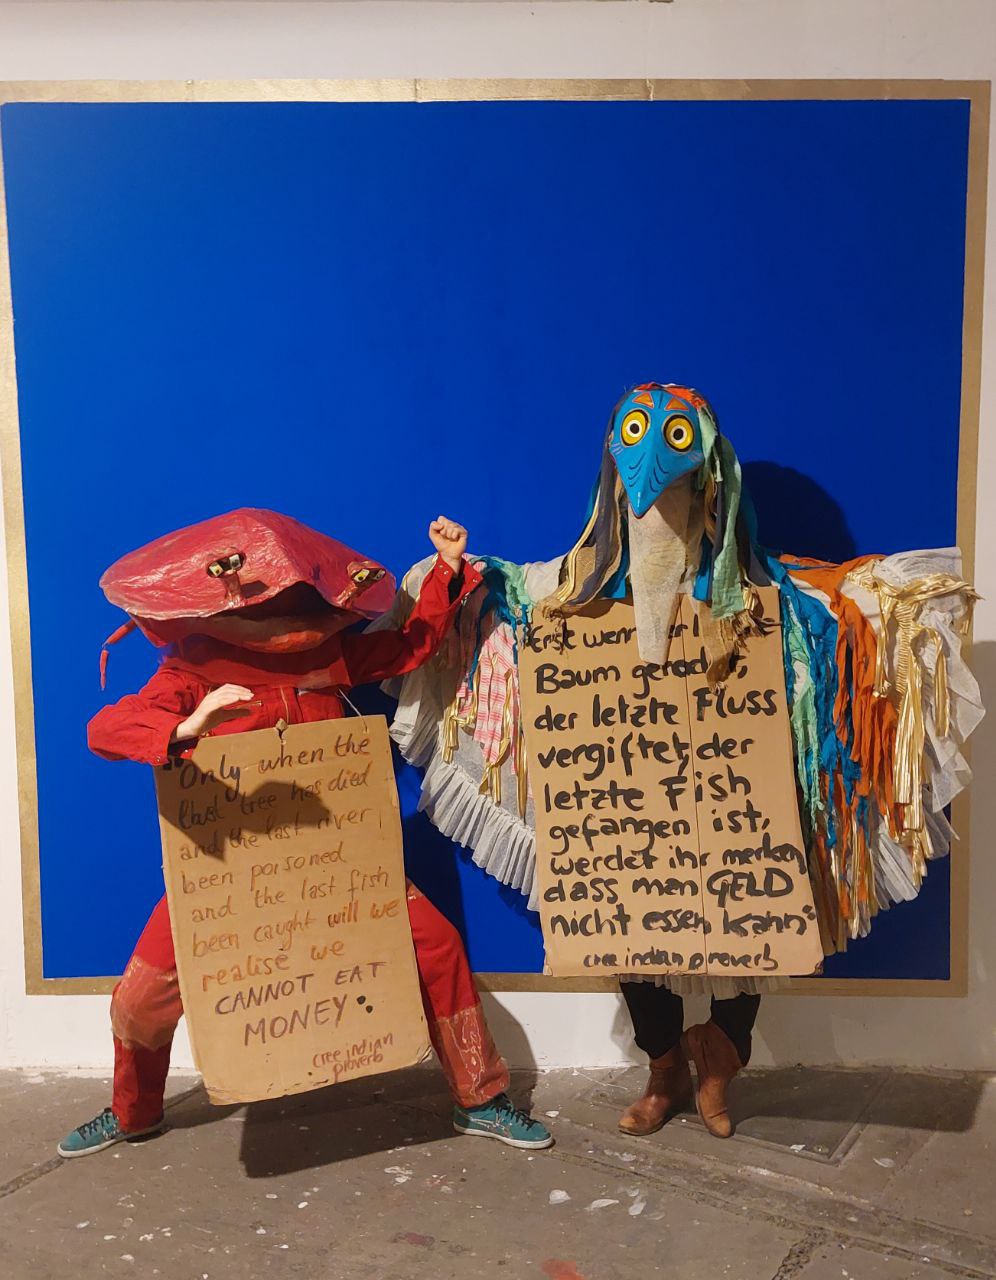 "Only when the
last tree has died
and the last river
been poisoned
and the last fish
been caught will we
realise we
CANNOT EAT
MONEY.
cree indian
proverb
"Erst wenn
Baum gerodet,
der letzte Fluss
vergiftet, der
letzte Fish
gefangen ist,
werdet ihr merken,
dass man GELD
nicht essen kann"
cree indian proverb